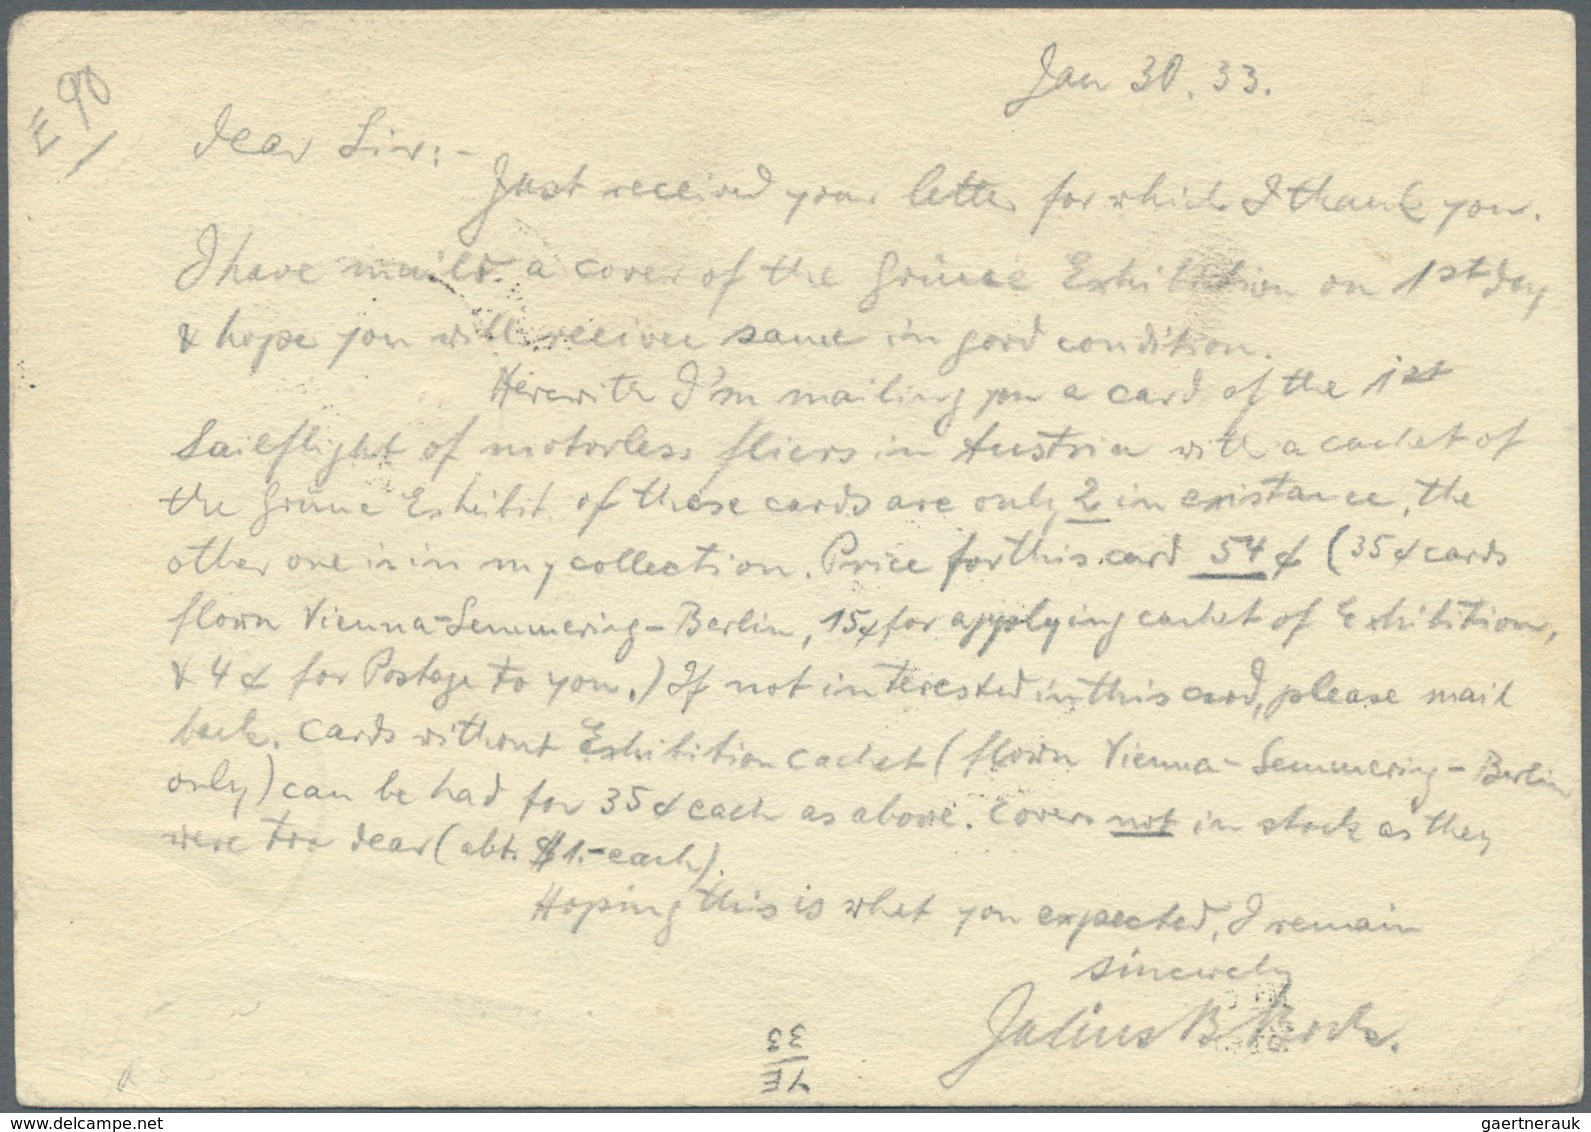 E 90
Jan 30. 33.
Dear Sir:-
Just received your letter for which I thank you.
I have maild a cover of the Grüne Exhibition on 1st day
& hope you will receive same in good condition.
Herewith I'm mailing you a card of the 1st
Sailflight of motorless fliers in Austria with a cachet of
the Grüne Exhibit. of these cards are only 2 in existance, the
other one is in my collection. Price for this card 54 ¢ (35 ¢ cards
flown Vienna-Semmering-Berlin, 15¢ for applying cachet of Exhibition,
& 4 ¢ for Postage to you.) If not interested in this card, please mail
back. Cards without Exhibition cachet (flown Vienna-Semmering-Berlin
only) can be had for 35 ¢ each as above. Covers not in stock as they
were too dear (abt. $1.- each).
Hoping this is what you expected, I remain
sincerely
Julius B.
YE
33
gaertnerauk